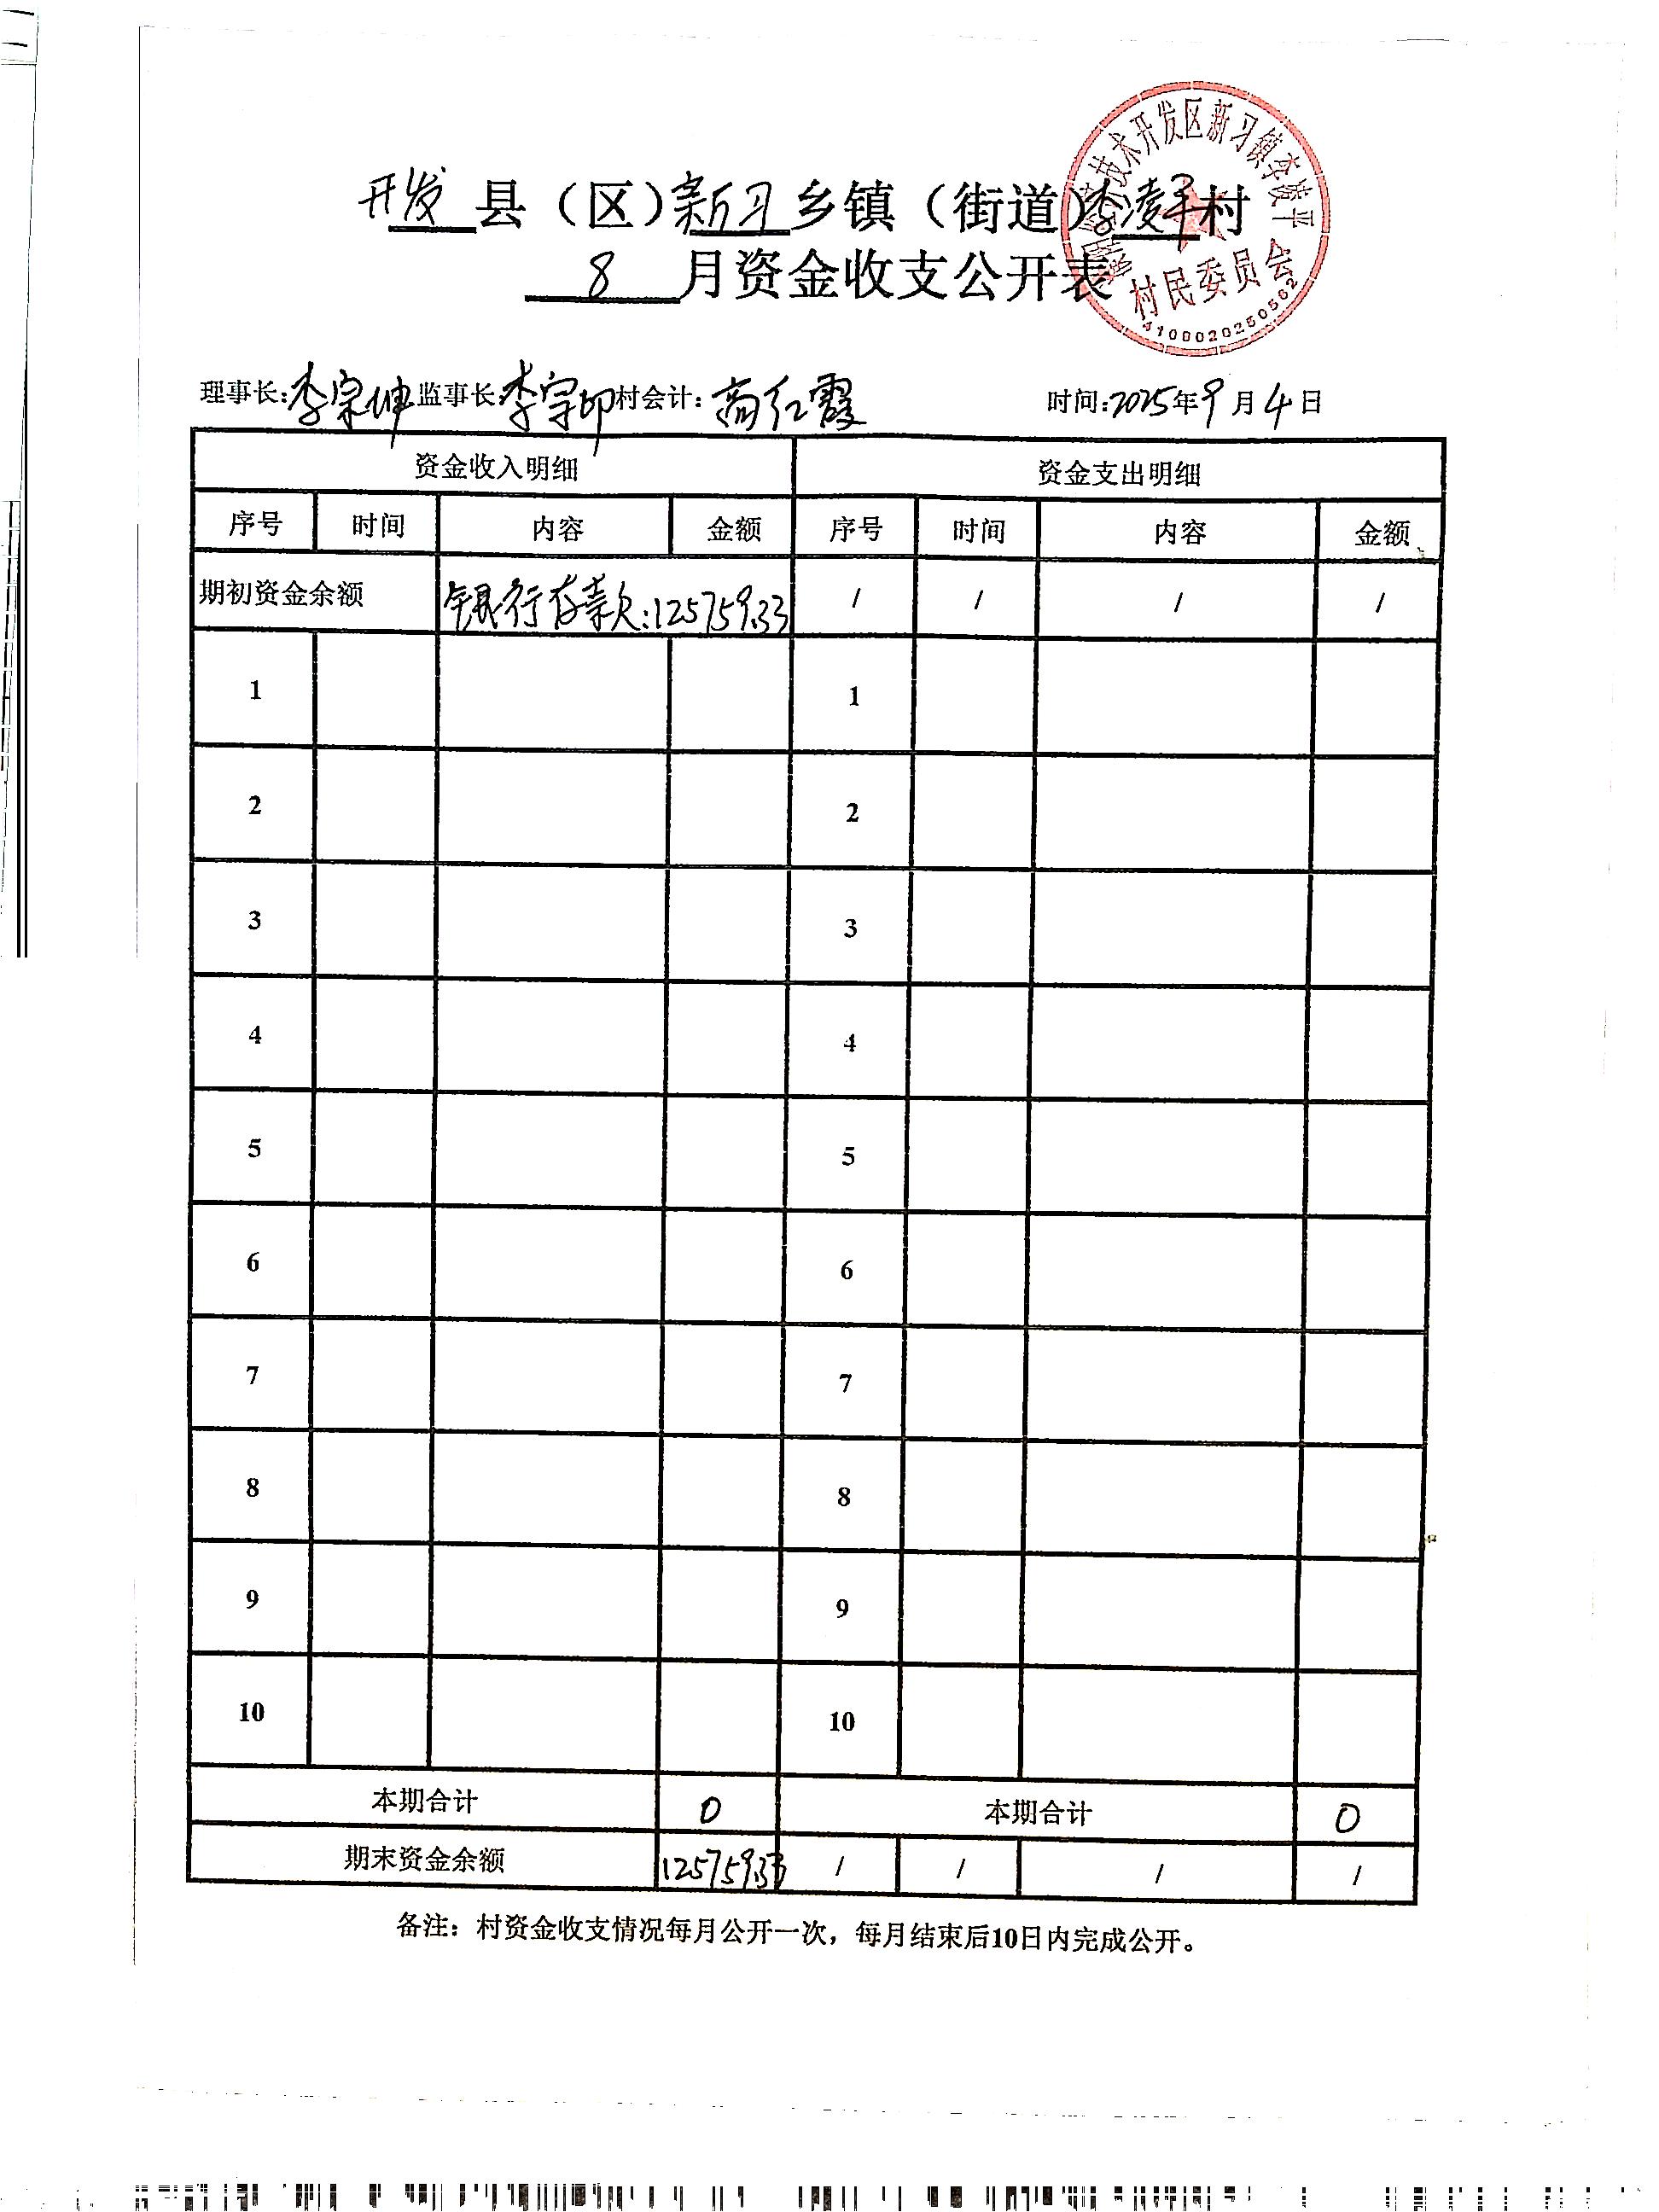 开发县（区）新习乡镇（街道）李凌平村
8月资金收支公开表
濮阳经济技术开发区新习镇李凌平
村民委员会
4100020250562
理事长：李宗坤 监事长：李宗印 村会计：高红霞 时间：2025年9月4日
资金收入明细 资金支出明细
序号 时间 内容 金额 序号 时间 内容 金额
期初资金余额 银行存款：125759.33 / / / /
1 1
2 2
3 3
4 4
5 5
6 6
7 7
8 8
9 9
10 10
本期合计 0 本期合计 0
期末资金余额 125759.33 / / / /
备注：村资金收支情况每月公开一次，每月结束后10日内完成公开。